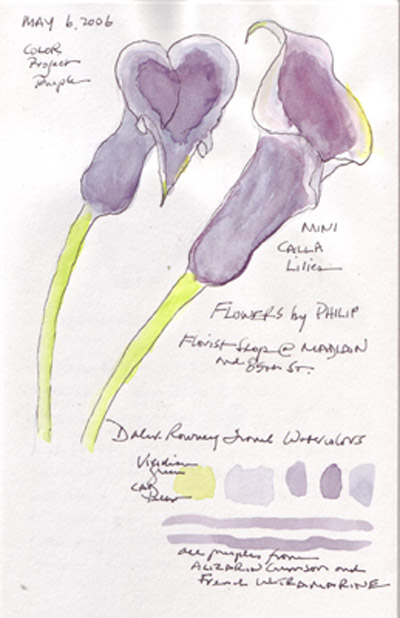 MAY 6, 2006
COLOR
Project
Purple
MINI
CALLA
Lilies
FLOWERS by PHILIP
Florist Shop @ MADISON
and 85th ST.
Daler Rowney Watercolors
Viridian
green
CAD
all purples from
ALIZARIN Crimson and
French ULTRAMARINE